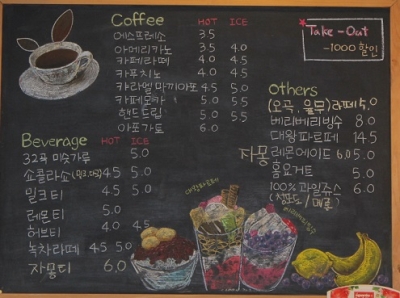 Coffee HOT ICE
에스프레소 3.5
아메리카노 3.5 4.0
카페라떼 4.0 4.5
카푸치노 4.0 4.5
카라멜마끼아또 4.5 5.0
카페모카 5.0 5.5
핸드드립 5.0 5.5
아포가토 6.0
Beverage HOT ICE
32곡 미숫가루 5.0
쇼콜라쇼 4.5 5.0
밀크티 4.5 5.0
레몬티 5.0
허브티 4.0 4.5
녹차라떼 4.5 5.0
자몽티 6.0
*Take-Out
-1000 할인
Others
(오곡, 율무)라떼 5.0
베리베리빙수 8.0
대왕파르페 14.5
자몽 레몬에이드 6.0 5.0
홈요거트 5.0
100% 과일쥬스 6.0